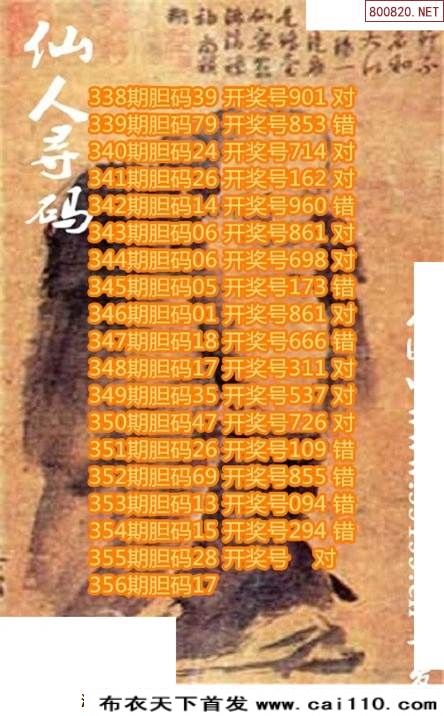 800820.NET
仙人寻码
338期胆码39 开奖号901 对
339期胆码79 开奖号853 错
340期胆码24 开奖号714 对
341期胆码26 开奖号162 对
342期胆码14 开奖号960 错
343期胆码06 开奖号861 对
344期胆码06 开奖号698 对
345期胆码05 开奖号173 错
346期胆码01 开奖号861 对
347期胆码18 开奖号666 错
348期胆码17 开奖号311 对
349期胆码35 开奖号537 对
350期胆码47 开奖号726 对
351期胆码26 开奖号109 错
352期胆码69 开奖号855 错
353期胆码13 开奖号094 错
354期胆码15 开奖号294 错
355期胆码28 开奖号 对
356期胆码17
布衣天下首发 www.cai110.com